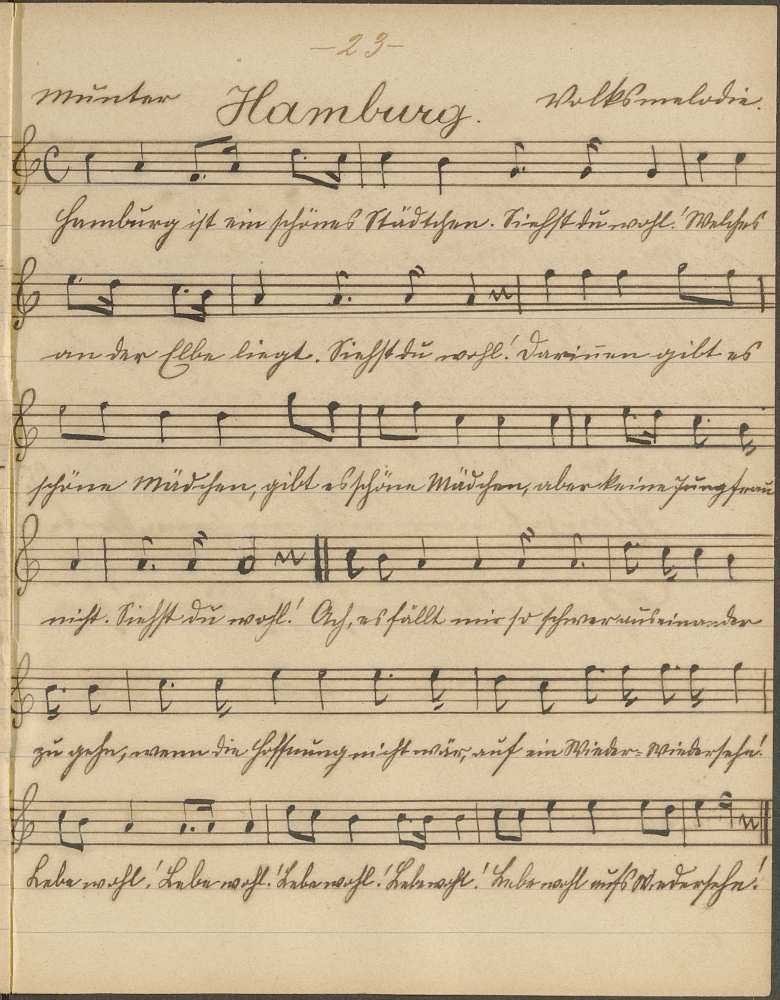 –23–
Munter Hamburg. Volksmelodie.
Hamburg ist ein schönes Städtchen. Siehst du wohl! Welches
an der Elbe liegt. Siehst du wohl! Darinnen gibt es
schöne Mädchen, gibt es schöne Mädchen, aber keine Jungfrau
nicht. Siehst du wohl! Ach, es fällt mir so schwer auseinander
zu gehn, wenn die Hoffnung nicht wär, auf ein Wieder= Wiedersehn!
Lebe wohl! Lebe wohl! Lebe wohl! Lebe wohl! Lebe wohl aufs Wiedersehn!